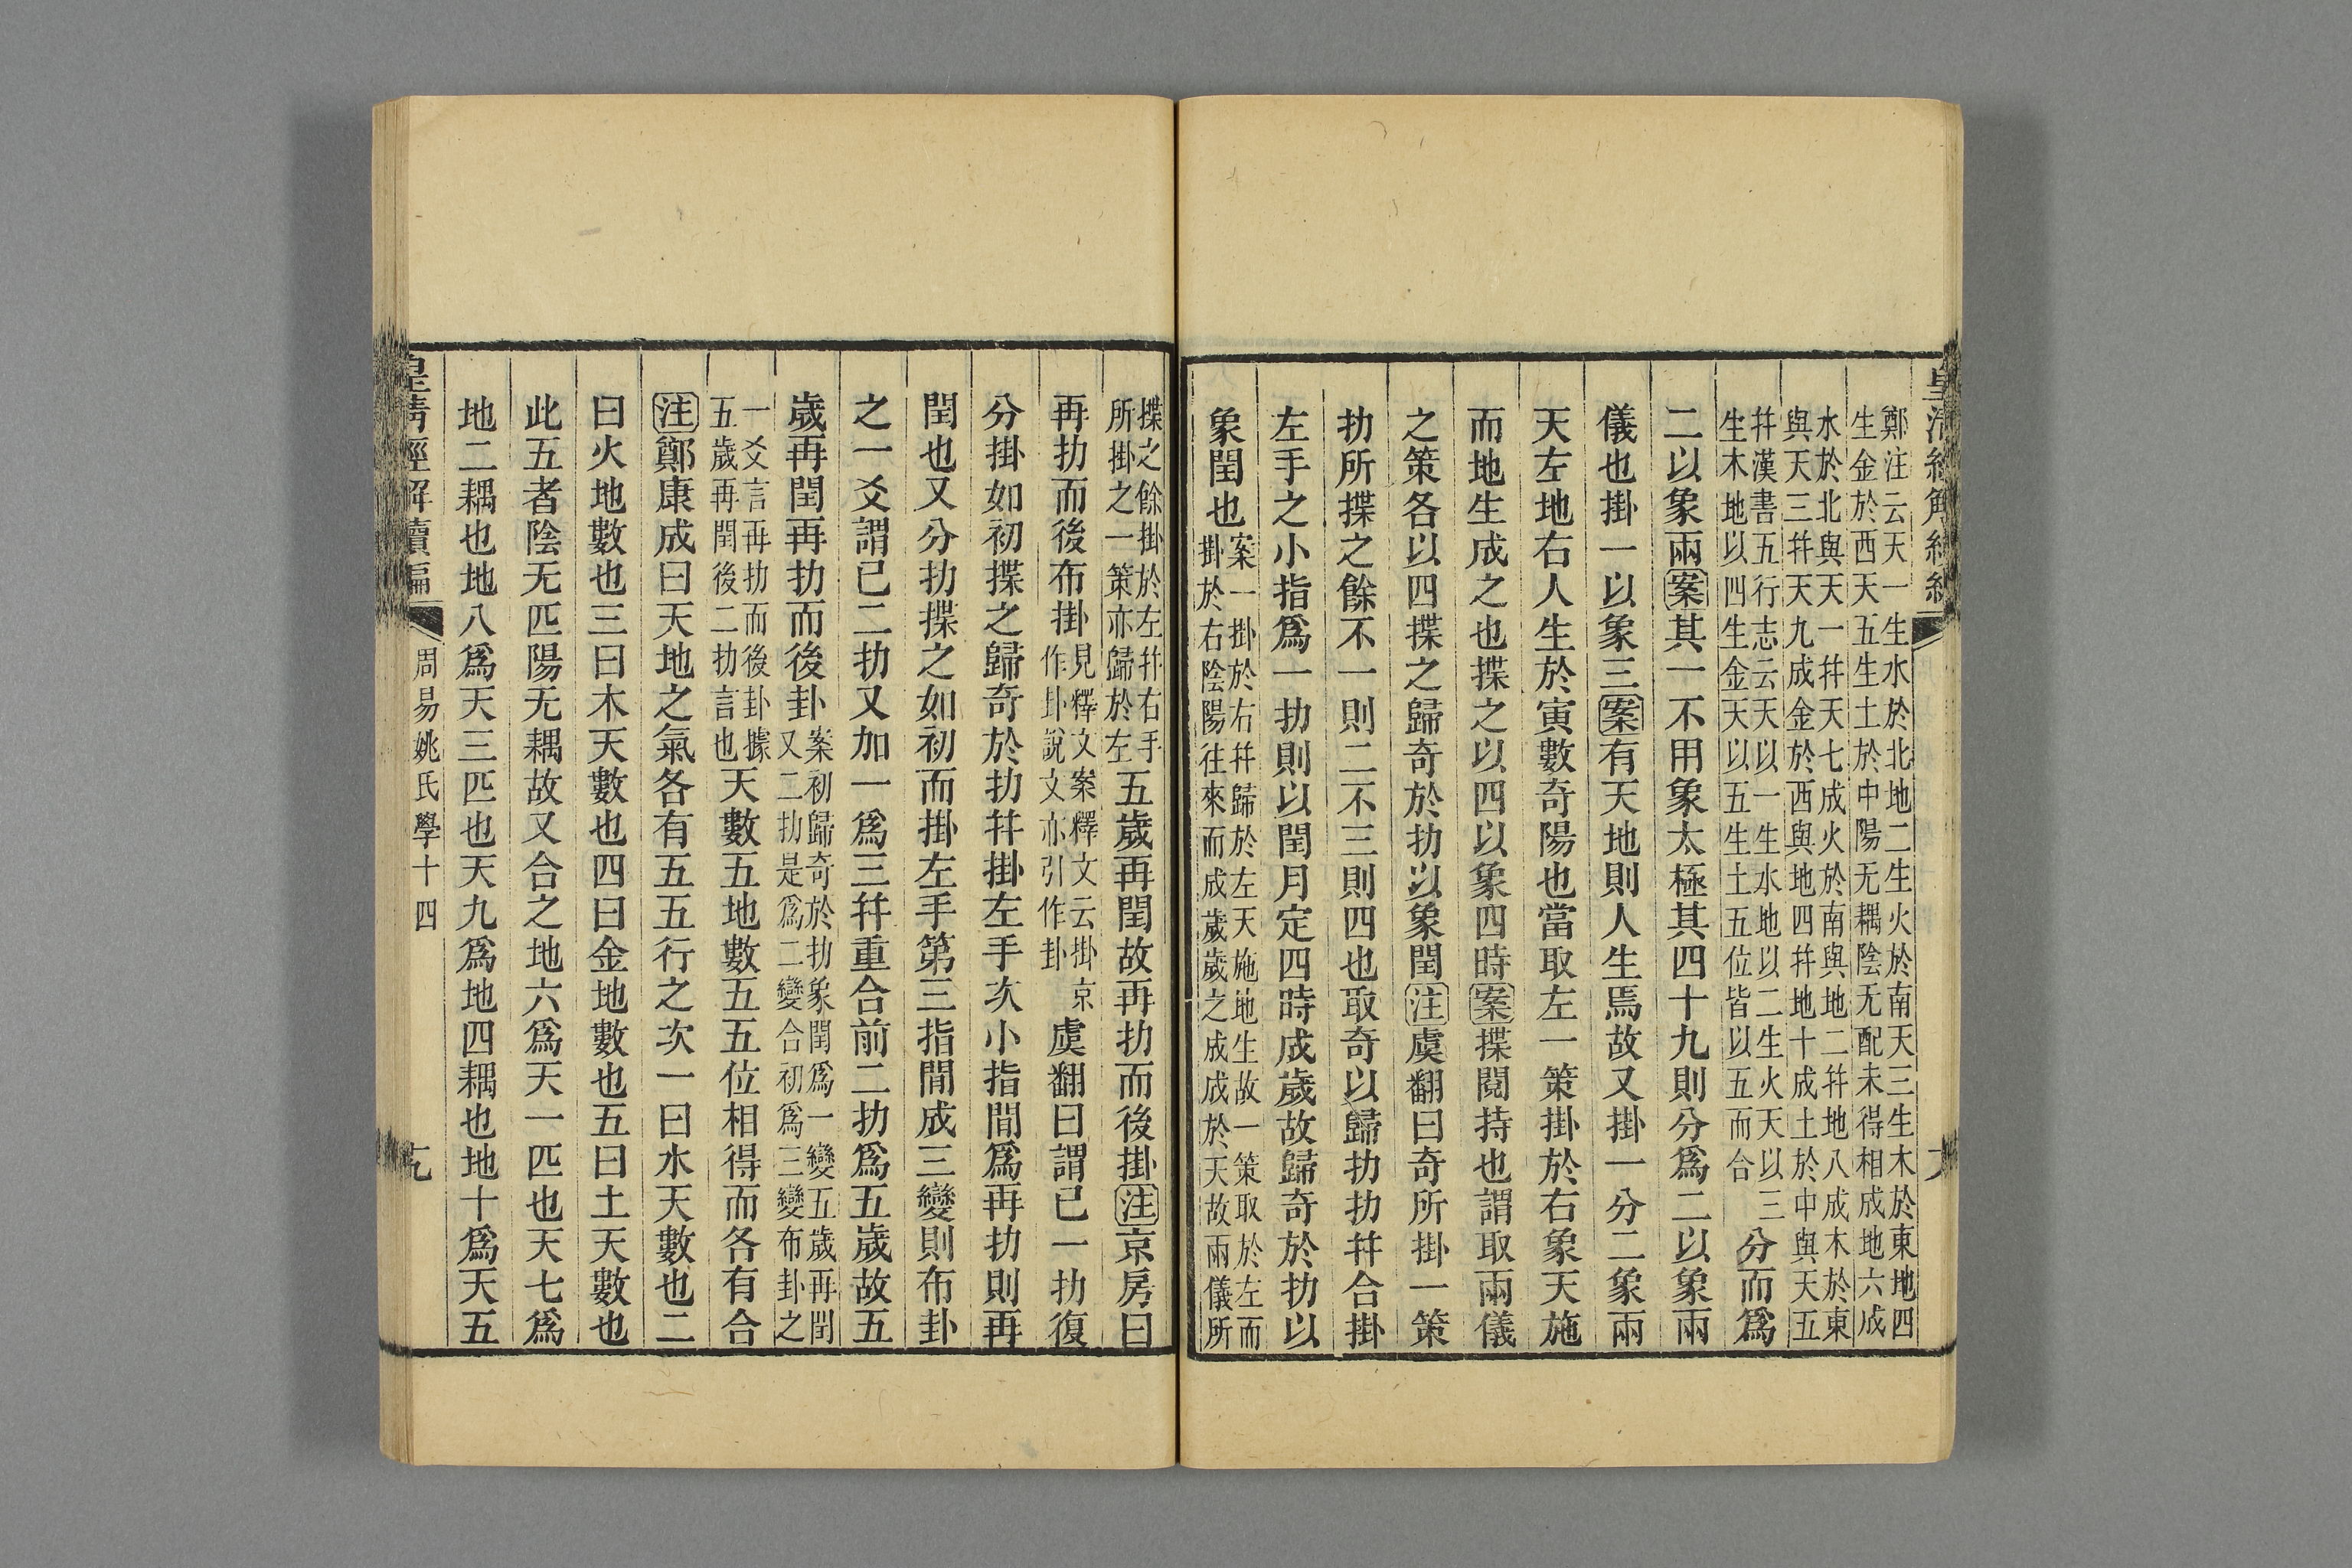 皇清經解續編
鄭注云天一生水於北地二生火於南天三生木於東地四
生金於西天五生土於中陽无耦陰无配未得相成地六成
水於北與天一幷天七成火於南與地二幷地八成木於東
與天三幷天九成金於西與地四幷地十成土於中與天五
幷漢書五行志云天以一生水地以二生火天以三
生木地以四生金天以五生土五位皆以五而合
分而爲
二以象兩案其一不用象太極其四十九則分爲二以象兩
儀也掛一以象三案有天地則人生焉故又掛一分二象兩
天左地右人生於寅數奇陽也當取左一策掛於右象天施
而地生成之也揲之以四以象四時案揲閱持也謂取兩儀
之策各以四揲之歸奇於扐以象閏注虞翻曰奇所掛一策
扐所揲之餘不一則二不三則四也取奇以歸扐扐幷合掛
左手之小指爲一扐則以閏月定四時成歲故歸奇於扐以
象閏也
案一掛於右幷歸於左天施地生故一策取於左而
掛於右陰陽往來而成歲歲之成成於天故兩儀所
揲之餘掛於左幷右手
所掛之一策亦歸於左
五歲再閏故再扐而後掛注京房曰
再扐而後布掛
見釋文案釋文云掛京
作卦說文亦引作卦
虞翻曰謂已一扐復
分掛如初揲之歸奇於扐幷掛左手次小指間爲再扐則再
閏也又分扐揲之如初而掛左手第三指間成三變則布卦
之一爻謂已二扐又加一爲三幷重合前二扐爲五歲故五
歲再閏再扐而後卦
案初歸奇於扐象閏爲一變五歲再閏
又二扐是爲二變合初爲三變布卦之
一爻言再扐而後卦據
五歲再閏後二扐言也
天數五地數五五位相得而各有合
注鄭康成曰天地之氣各有五五行之次一曰水天數也二
曰火地數也三曰木天數也四曰金地數也五曰土天數也
此五者陰无匹陽无耦故又合之地六爲天一匹也天七爲
地二耦也地八爲天三匹也天九爲地四耦也地十爲天五
皇清經解續編
周易姚氏學十四
九